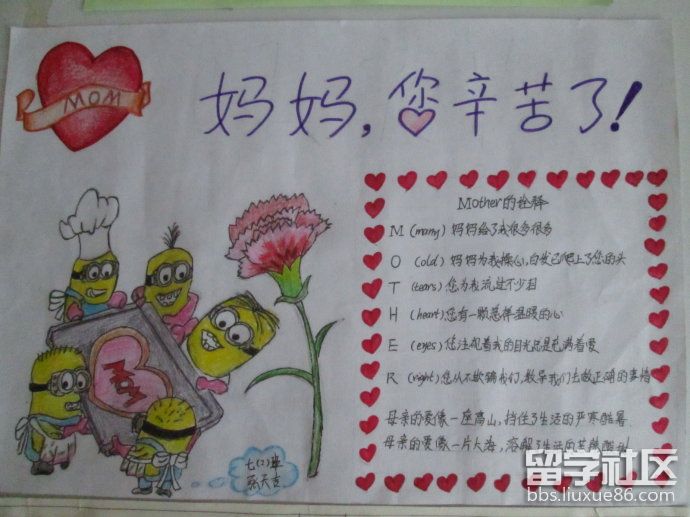 MOM
妈妈,您辛苦了!
Mother的诠释
M (many) 妈妈给了我很多很多
O (old) 妈妈为我操心,白发已爬上了您的头
T (tears) 您为我流过不少泪
H (heart) 您有一颗慈祥温暖的心
E (eyes) 您注视着我的目光总是充满着爱
R (right) 您从不欺骗我们,教导我们去做正确的事情
母亲的爱像一座高山,挡住了生活的严寒酷暑
母亲的爱像一片大海,溶解了生活的
MOM
七(2)班
天吉
留学社区
bbs.liuxue86.com